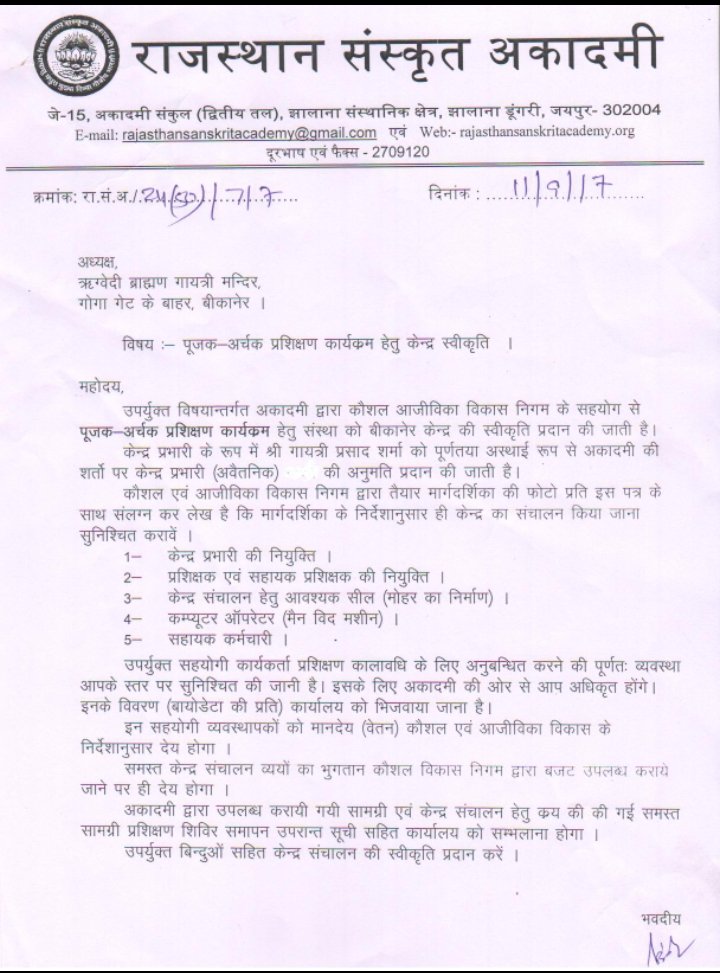 राजस्थान संस्कृत अकादमी
जे-15, अकादमी संकुल (द्वितीय तल), झालाना संस्थानिक क्षेत्र, झालाना डूंगरी, जयपुर- 302004
E-mail: rajasthansanskritacademy@gmail.com एवं Web:- rajasthansanskritacademy.org
दूरभाष एवं फैक्स - 2709120
क्रमांक: रा.सं.अ./.24(50)/17/7.....
दिनांक : ......11/9/17............
अध्यक्ष,
ऋग्वेदी ब्राह्मण गायत्री मन्दिर,
गोगा गेट के बाहर, बीकानेर ।
विषय :– पूजक–अर्चक प्रशिक्षण कार्यक्रम हेतु केन्द्र स्वीकृति ।
महोदय,
उपर्युक्त विषयान्तर्गत अकादमी द्वारा कौशल आजीविका विकास निगम के सहयोग से
पूजक–अर्चक प्रशिक्षण कार्यक्रम हेतु संस्था को बीकानेर केन्द्र की स्वीकृति प्रदान की जाती है।
केन्द्र प्रभारी के रूप में श्री गायत्री प्रसाद शर्मा को पूर्णतया अस्थाई रूप से अकादमी की
शर्तो पर केन्द्र प्रभारी (अवैतनिक) की अनुमति प्रदान की जाती है।
कौशल एवं आजीविका विकास निगम द्वारा तैयार मार्गदर्शिका की फोटो प्रति इस पत्र के
साथ संलग्न कर लेख है कि मार्गदर्शिका के निर्देशानुसार ही केन्द्र का संचालन किया जाना
सुनिश्चित करावें ।
1– केन्द्र प्रभारी की नियुक्ति ।
2– प्रशिक्षक एवं सहायक प्रशिक्षक की नियुक्ति ।
3– केन्द्र संचालन हेतु आवश्यक सील (मोहर का निर्माण) ।
4– कम्प्यूटर ऑपरेटर (मैन विद मशीन) ।
5– सहायक कर्मचारी ।
उपर्युक्त सहयोगी कार्यकर्ता प्रशिक्षण कालावधि के लिए अनुबन्धित करने की पूर्णतः व्यवस्था
आपके स्तर पर सुनिश्चित की जानी है। इसके लिए अकादमी की ओर से आप अधिकृत होंगे।
इनके विवरण (बायोडेटा की प्रति) कार्यालय को भिजवाया जाना है।
इन सहयोगी व्यवस्थापकों को मानदेय (वेतन) कौशल एवं आजीविका विकास के
निर्देशानुसार देय होगा ।
समस्त केन्द्र संचालन व्ययों का भुगतान कौशल विकास निगम द्वारा बजट उपलब्ध कराये
जाने पर ही देय होगा ।
अकादमी द्वारा उपलब्ध करायी गयी सामग्री एवं केन्द्र संचालन हेतु क्रय की की गई समस्त
सामग्री प्रशिक्षण शिविर समापन उपरान्त सूची सहित कार्यालय को सम्भलाना होगा ।
उपर्युक्त बिन्दुओं सहित केन्द्र संचालन की स्वीकृति प्रदान करें ।
भवदीय